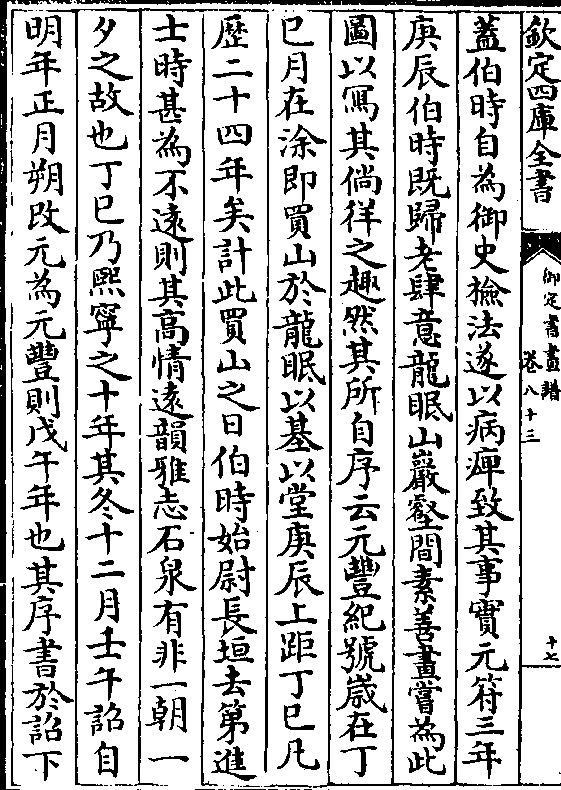 欽定四庫全書
御定書畫譜
卷八十三
十七
蓋伯時自為御史撿法遂以病痺致其事實元符三年
庚辰伯時既歸老肆意龍眠山巖壑間素善畫嘗為此
圖以寫其倘徉之趣然其所自序云元豐紀號歲在丁
巳月在涂即買山於龍眠以基以堂庚辰上距丁巳凡
歷二十四年矣計此買山之日伯時始尉長垣去第進
士時甚為不遠則其高情遠韻雅志石泉有非一朝一
夕之故也丁巳乃熙寧之十年其冬十二月壬午詔自
明年正月朔改元為元豐則戊午年也其序書於詔下